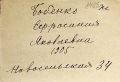 Бобенко
Ферросиния
Яковлевна
1905
Новосельская 34